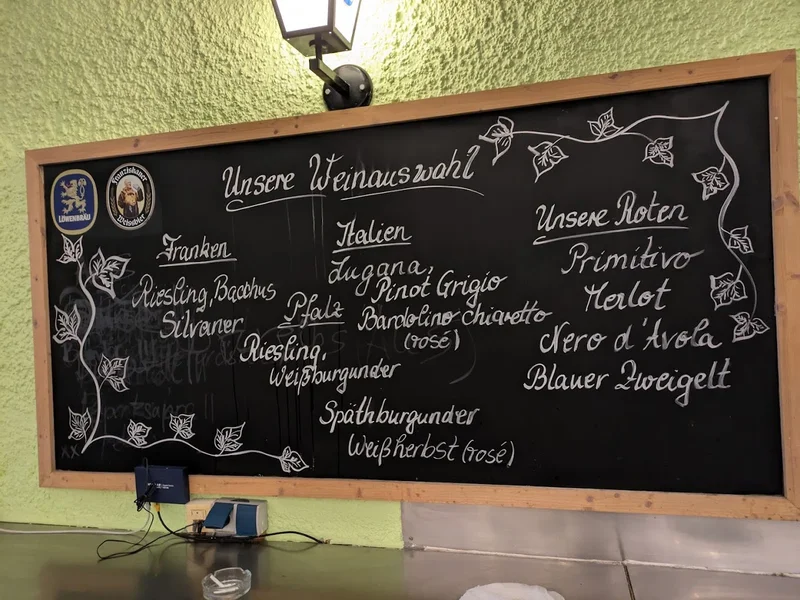 LÖWENBRÄU
Franziskaner
Weissbier
Unsere Weinauswahl
Franken
Riesling, Bacchus
Silvaner
Italien
Lugana,
Pinot Grigio
Bardolino Chiaretto
(rosé)
Pfalz
Riesling,
Weißburgunder
Späthburgunder
Weißherbst (rosé)
Unsere Roten
Primitivo
Merlot
Nero d'Avola
Blauer Zweigelt